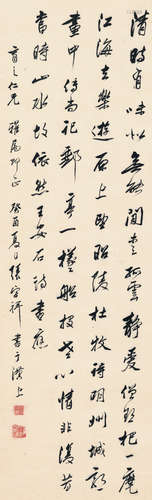 清時有味是無能閒愛孤雲靜愛僧欲把一麾
江海去樂遊原上望昭陵杜牧詩明州城郭
畫中傳尚記鄮亭一檥船投老心情非復昔
當時山水故依然王安石詩書應
育之仁兄雅屬即正癸酉夏日張宗祥書于漢上